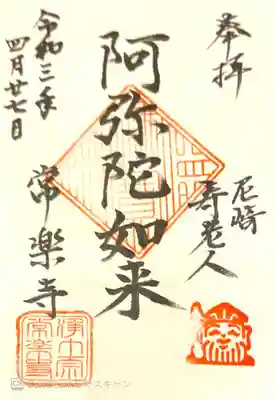 奉拝
尼崎
寿老人
阿弥陀如来
常楽寺
令和三年
四月廿七日
浄土宗
常楽寺